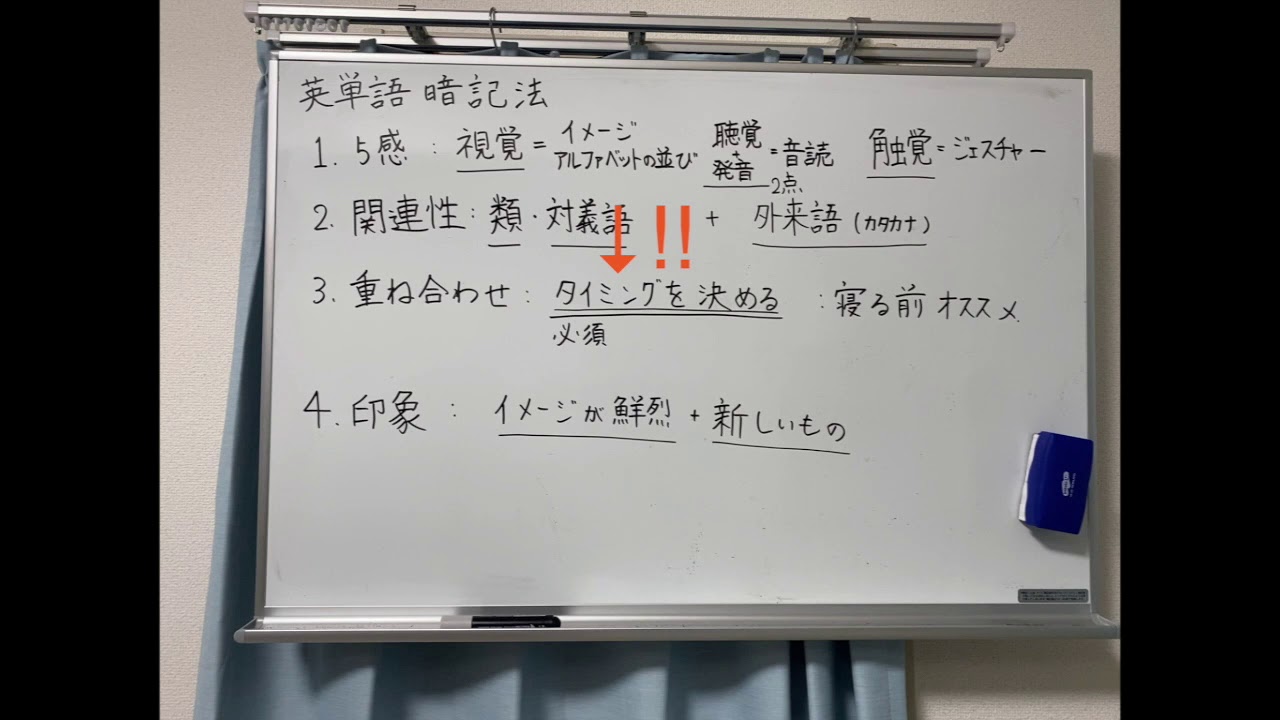 英単語 暗記法
1. 5感 : 視覚 = イメージ アルファベットの並び 聴覚 + 発音 = 音読 2点 角触覚 = ジェスチャー
2. 関連性 : 類・対義語 + 外来語 (カタカナ)
!!
3. 重ね合わせ : タイミングを決める : 寝る前 オススメ
必須
4. 印象 : イメージが鮮烈 + 新しいもの